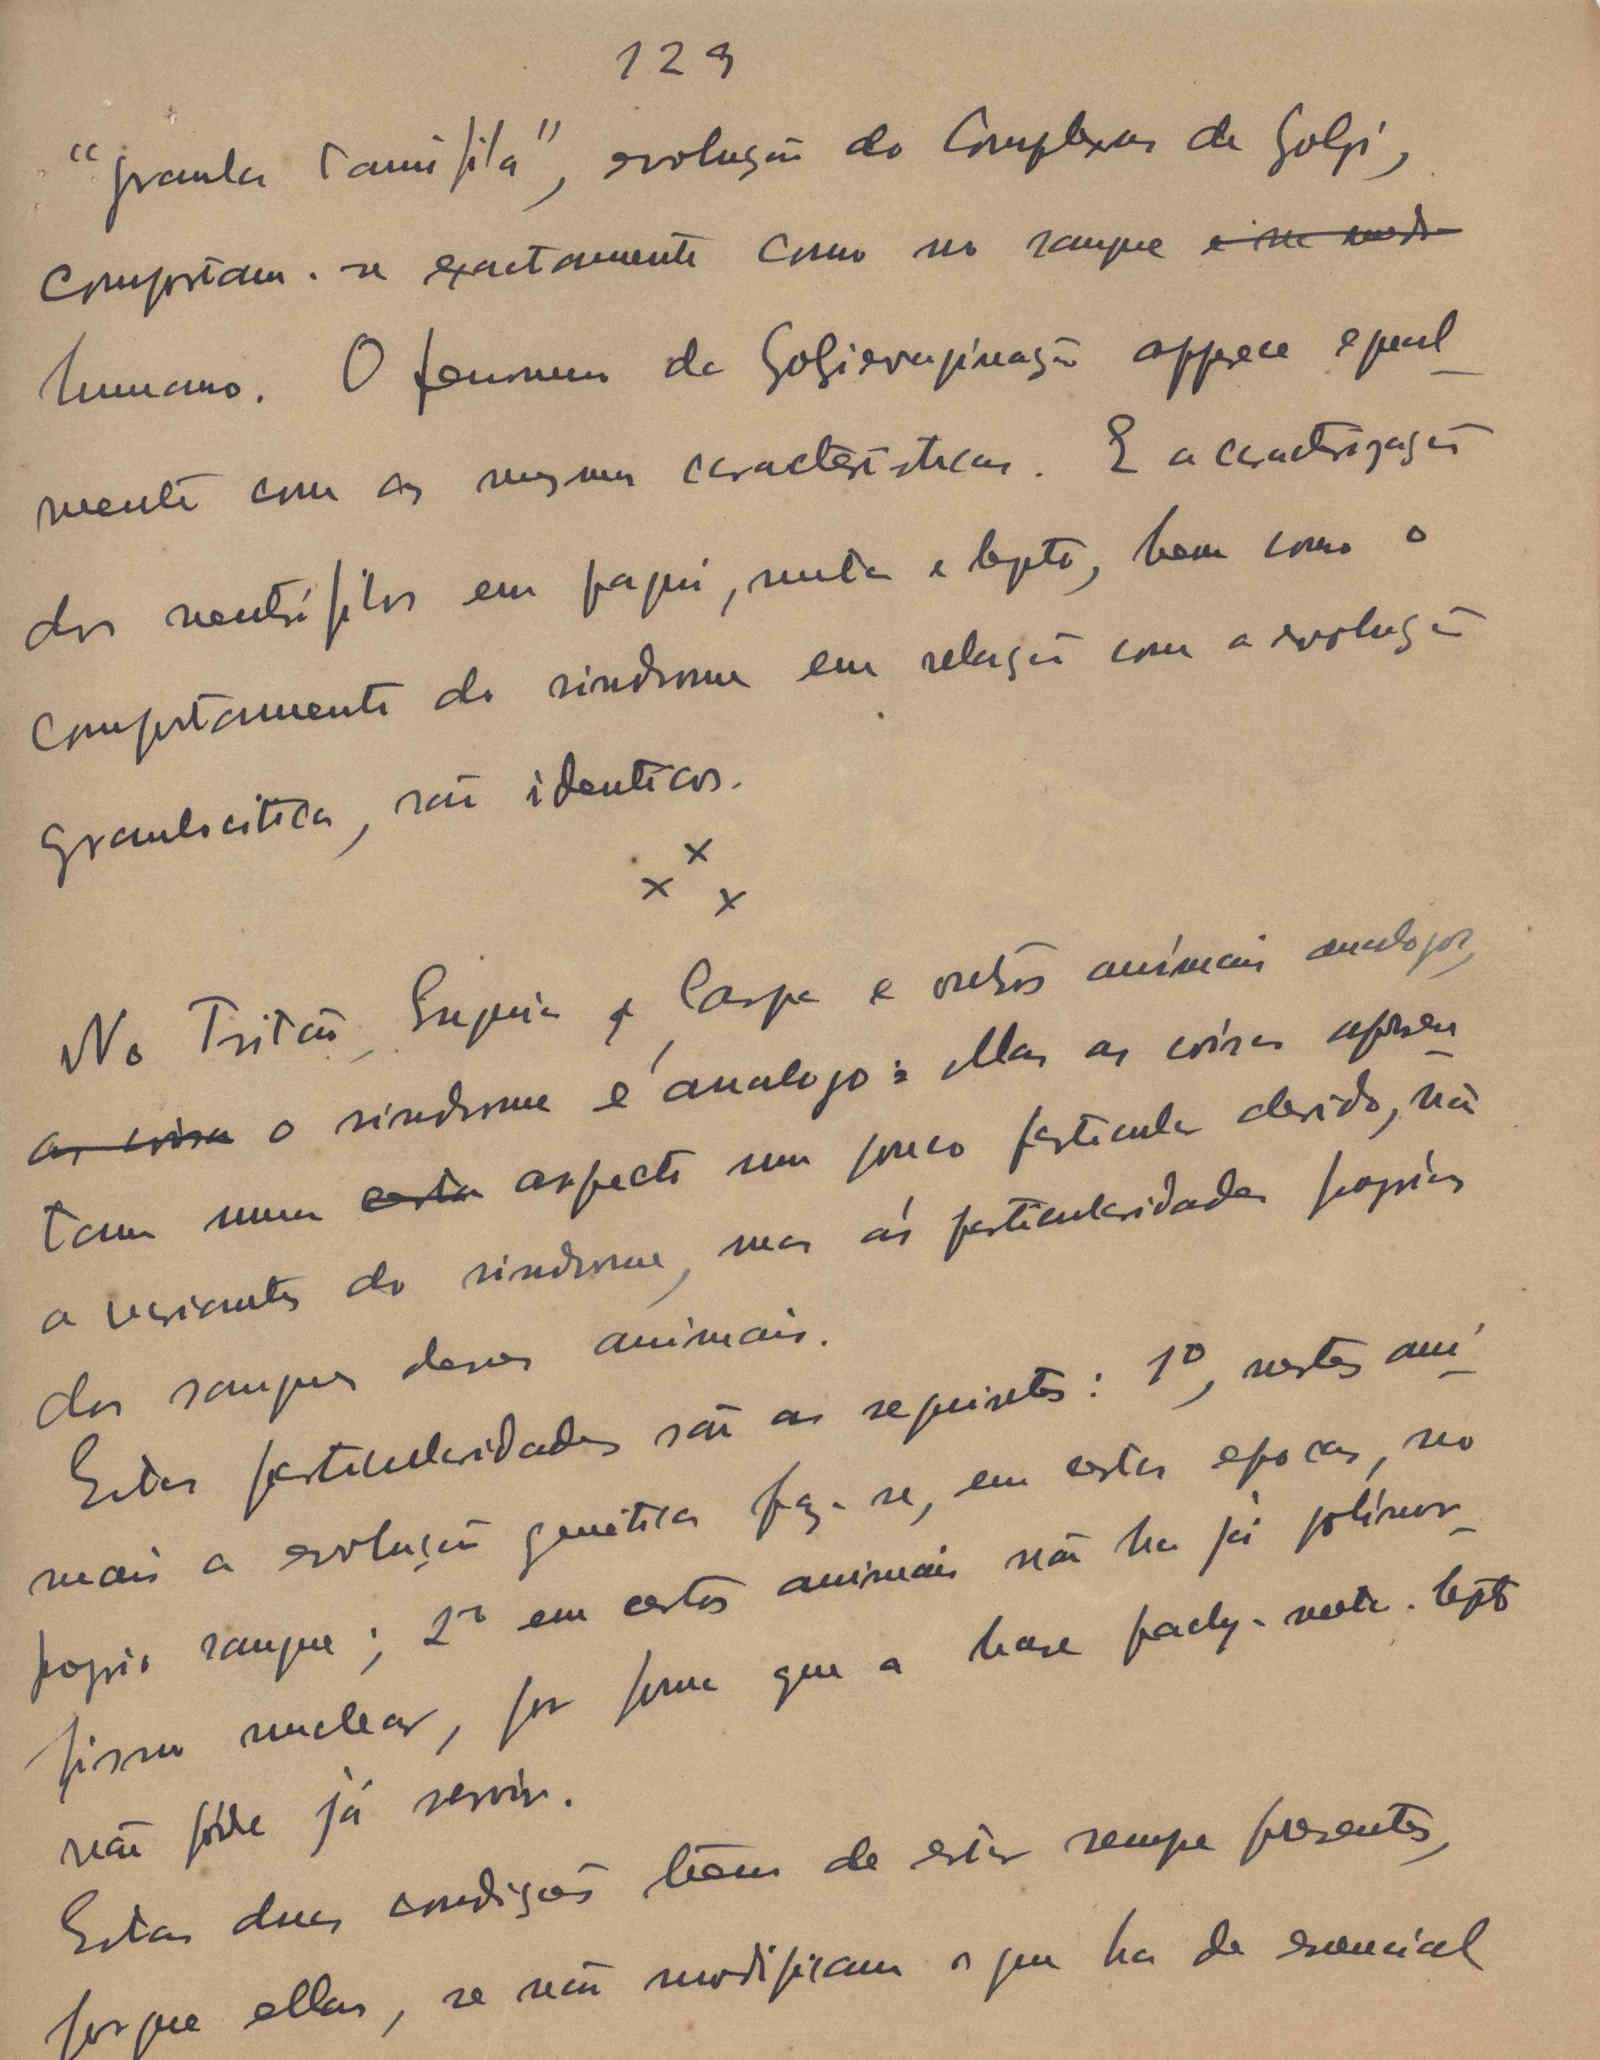 129
"granula tanifila", evolução do Complexos de Golgi,
comportam-se exactamente como no sangue e na medu
humano. O fenomeno da Golgievaginação apparece egual_
mente com as mesmas caracteristicas. E a caracterização
dos neutrófilos em paqui, meta e lepto, bem como o
comportamento do sindrome em relação com a evolução
granulocitica, são identicos.
x
x x
No Tritão, Enguia, Carpa e outros animais analogos,
as coisas o sindrome é analogo: Mas as coisas apresen_
tam num certo aspecto um pouco particular devido, não
a variantes do sindrome, mas ás particularidades proprias
dos sangues desses animais.
Estas particularidades são as seguintes: 1º, nestes ani_
mais a evolução genética faz-se, em certas epocas, no
proprio sangue; 2º em certos animais não ha já polimor_
fismo nuclear, por forma que a base pachy-meta-lepto
não póde já servir.
Estas duas condições têem de estar sempre presentes,
porque ellas, se não modificam o que ha de essencial